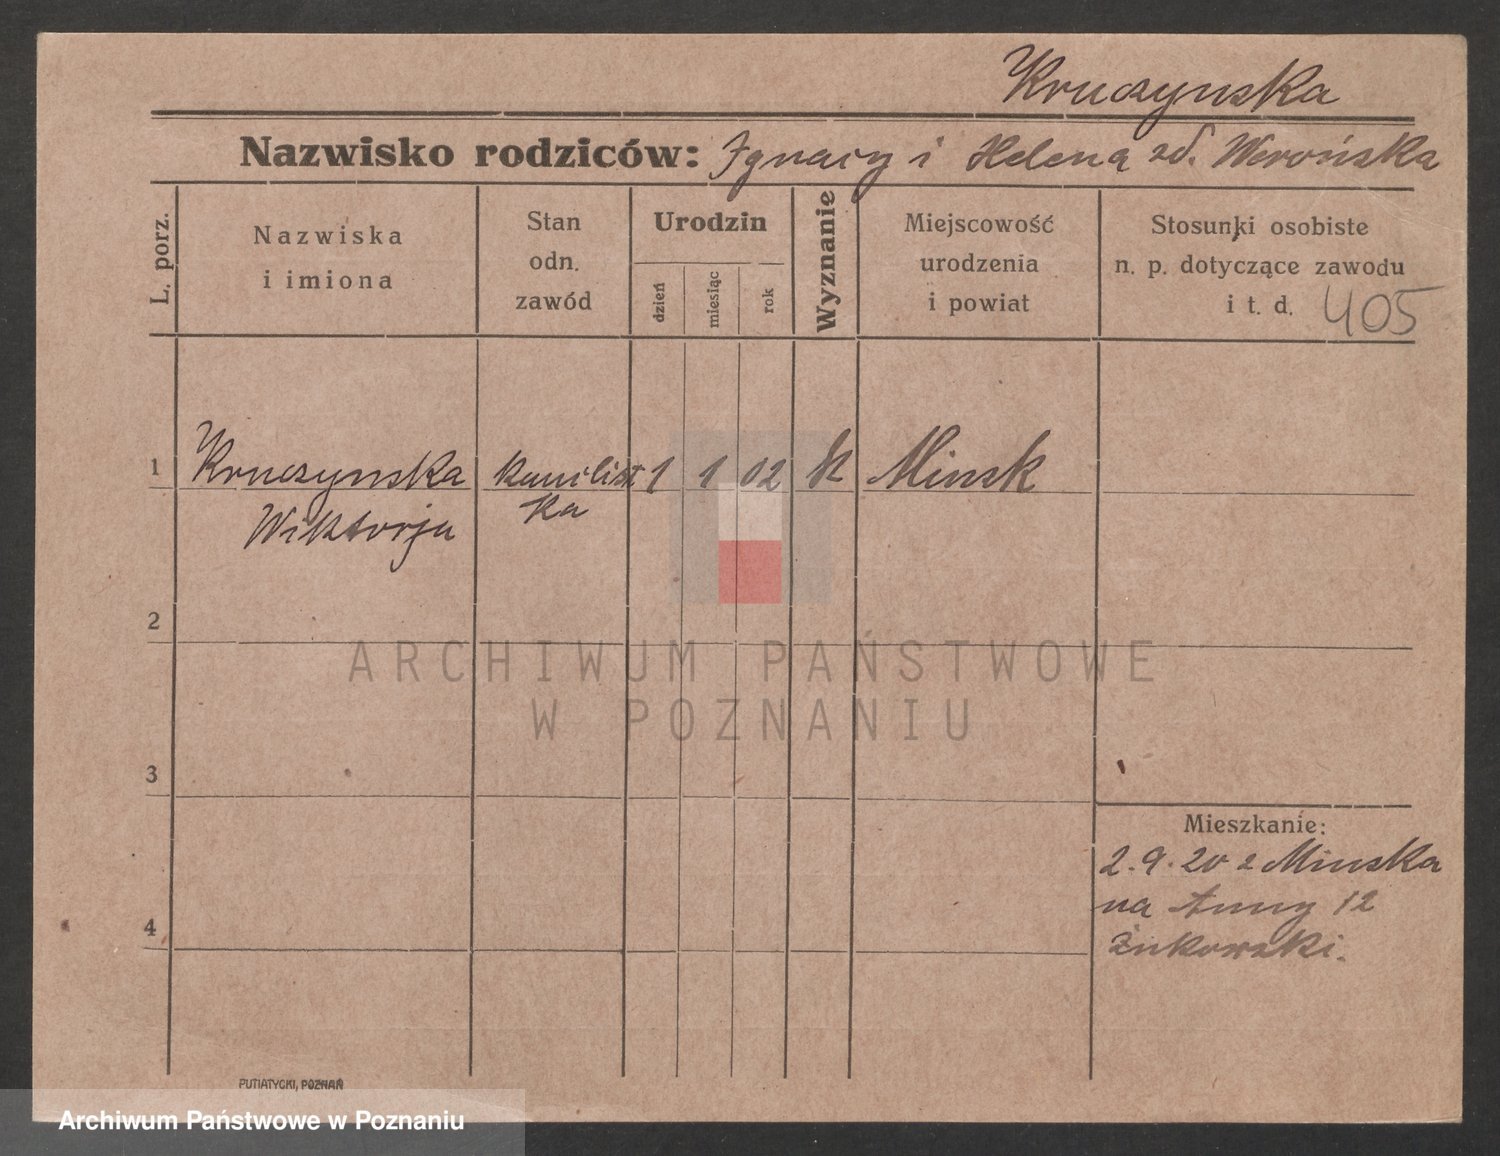 Kruczynska
Nazwisko rodziców: Ignacy i Helena zd. Werońska
L. porz.
Nazwiska
i imiona
Stan
odn.
zawód
Urodzin
dzień
miesiąc
rok
Wyznanie
Miejscowość
urodzenia
i powiat
Stosunki osobiste
n. p. dotyczące zawodu
i t. d. 405
1 Kruczynska kancilist 1 1 02 k Minsk
Wiktorja ka
2
3
4
Mieszkanie:
2.9.20 z Minska
na Anny 12
Żukowski.
ARCHIWUM PAŃSTWOWE
W POZNANIU
PUTIATYCKI, POZNAŃ
Archiwum Państwowe w Poznaniu